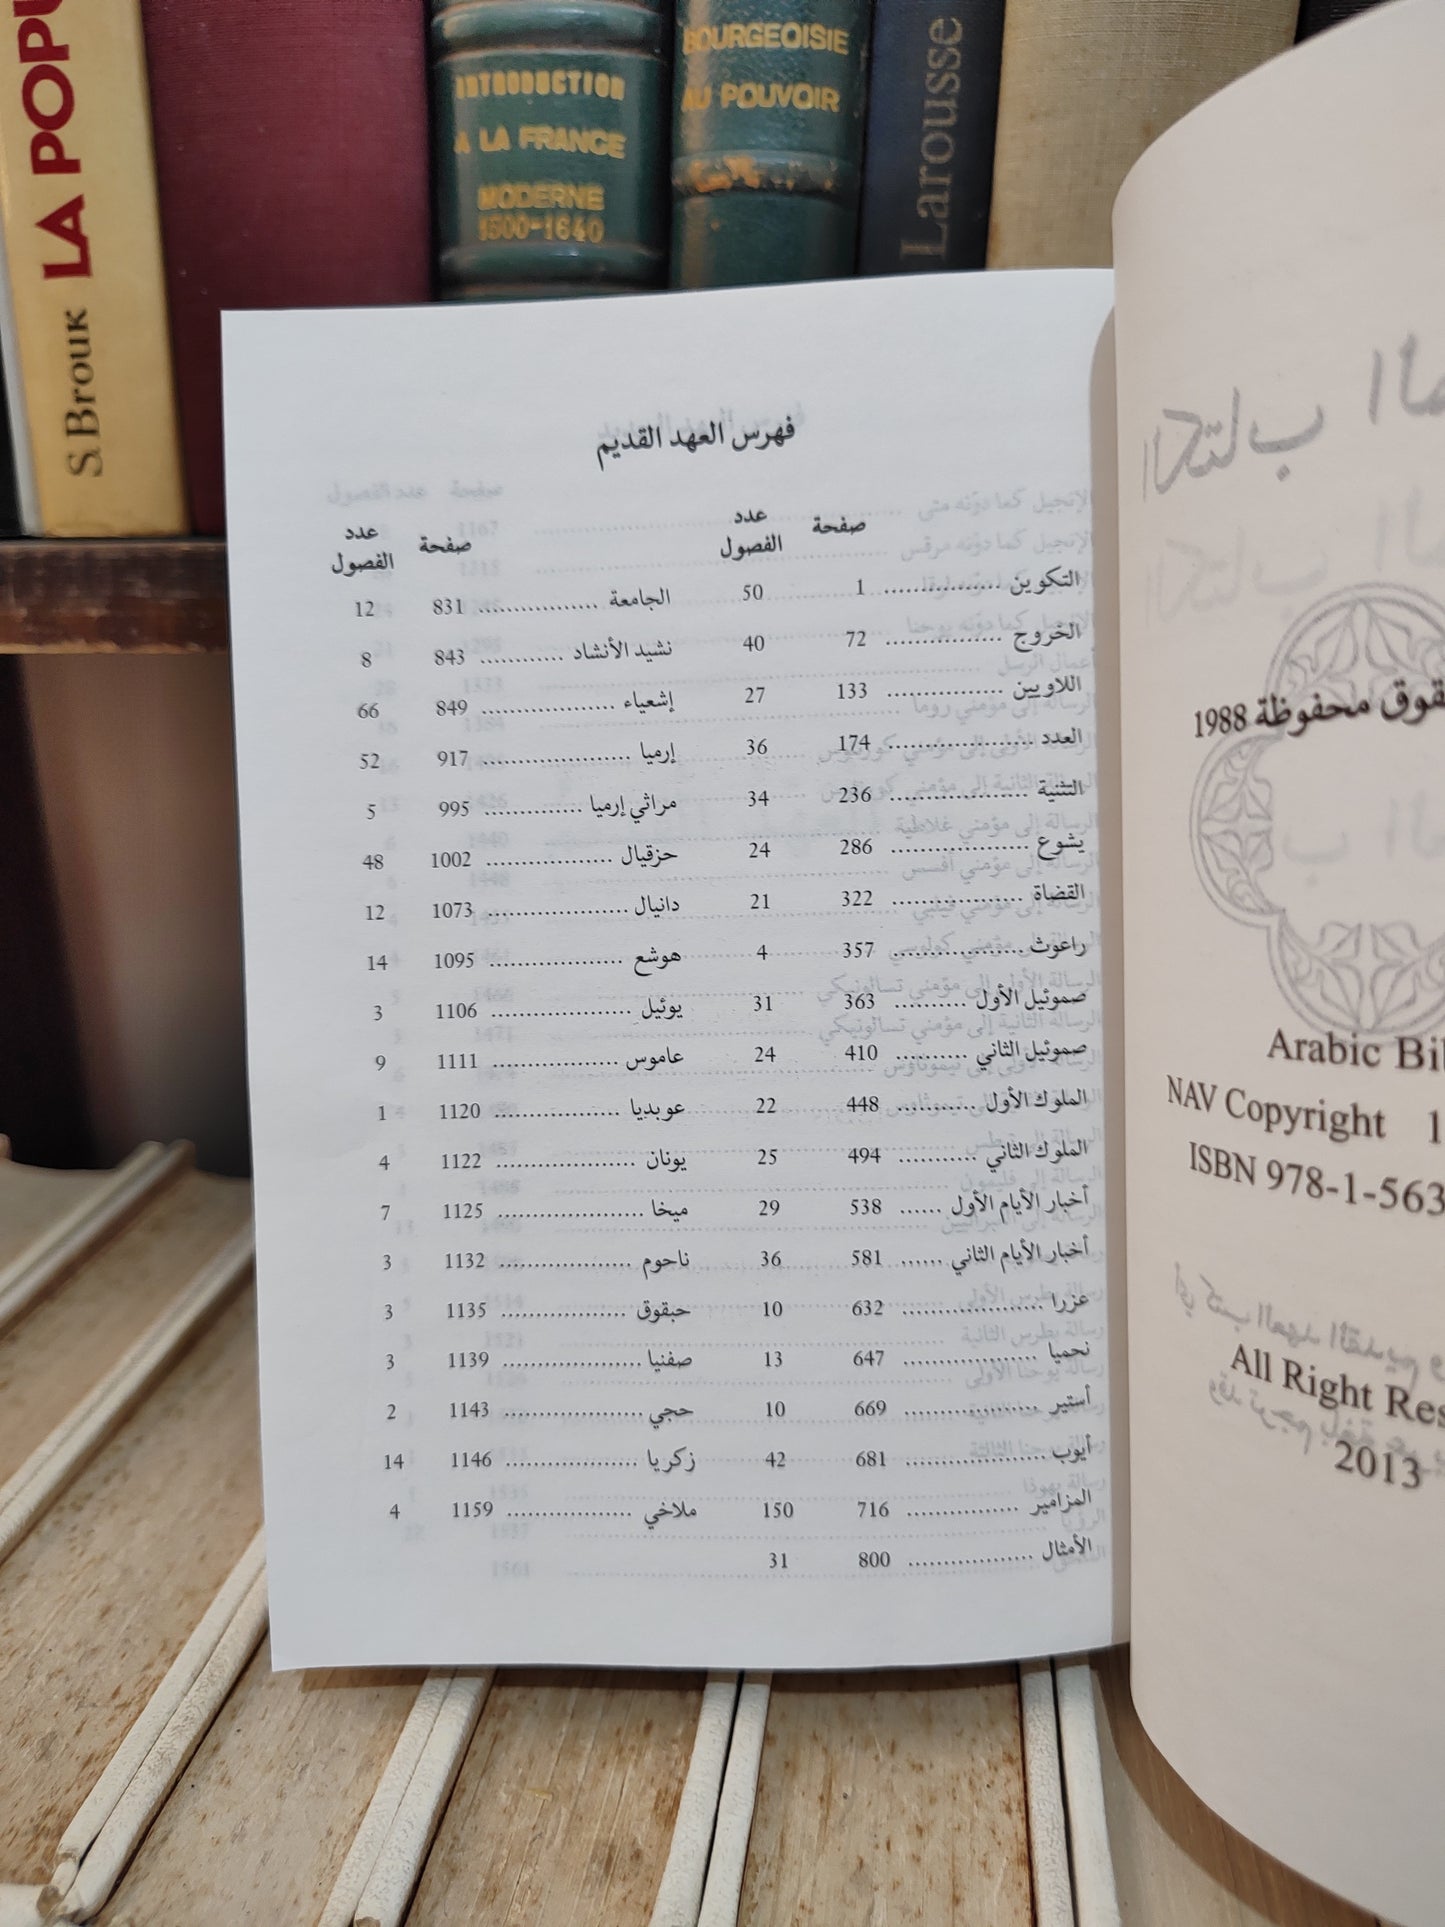 LA POPU
S. BROUK
INTRODUCTION
A LA FRANCE
MODERNE
1500-1640
BOURGEOISIE
AU POUVOIR
Larousse
فهرس العهد القديم
صفحة عدد الفصول
التكوين ................. 1 50
الخروج ................. 72 40
اللاويين ................. 133 27
العدد ..................... 174 36
التثنية .................... 236 34
يشوع .................... 286 24
القضاة ................... 322 21
راعوث ................... 357 4
صموئيل الأول ........... 363 31
صموئيل الثاني ........... 410 24
الملوك الأول ............ 448 22
الملوك الثاني ............ 494 25
أخبار الأيام الأول ...... 538 29
أخبار الأيام الثاني ...... 581 36
عزرا ..................... 632 10
نحميا .................... 647 13
أستير .................... 669 10
أيوب ..................... 681 42
المزامير ................ 716 150
الأمثال .................. 800 31
صفحة عدد الفصول
الجامعة .................. 831 12
نشيد الأنشاد ............ 843 8
إشعياء ................... 849 66
إرميا ..................... 917 52
مراثي إرميا .............. 995 5
حزقيال ................... 1002 48
دانيال ..................... 1073 12
هوشع .................... 1095 14
يوئيل ..................... 1106 3
عاموس ................... 1111 9
عوبديا ................... 1120 1
يونان ..................... 1122 4
ميخا ...................... 1125 7
ناحوم .................... 1132 3
حبقوق ................... 1135 3
صفنيا ..................... 1139 3
حجي ..................... 1143 2
زكريا .................... 1146 14
ملاخي ................... 1159 4
محفوظة 1988
Arabic Bi
NAV Copyright 1
ISBN 978-1-563
All Right Res
2013